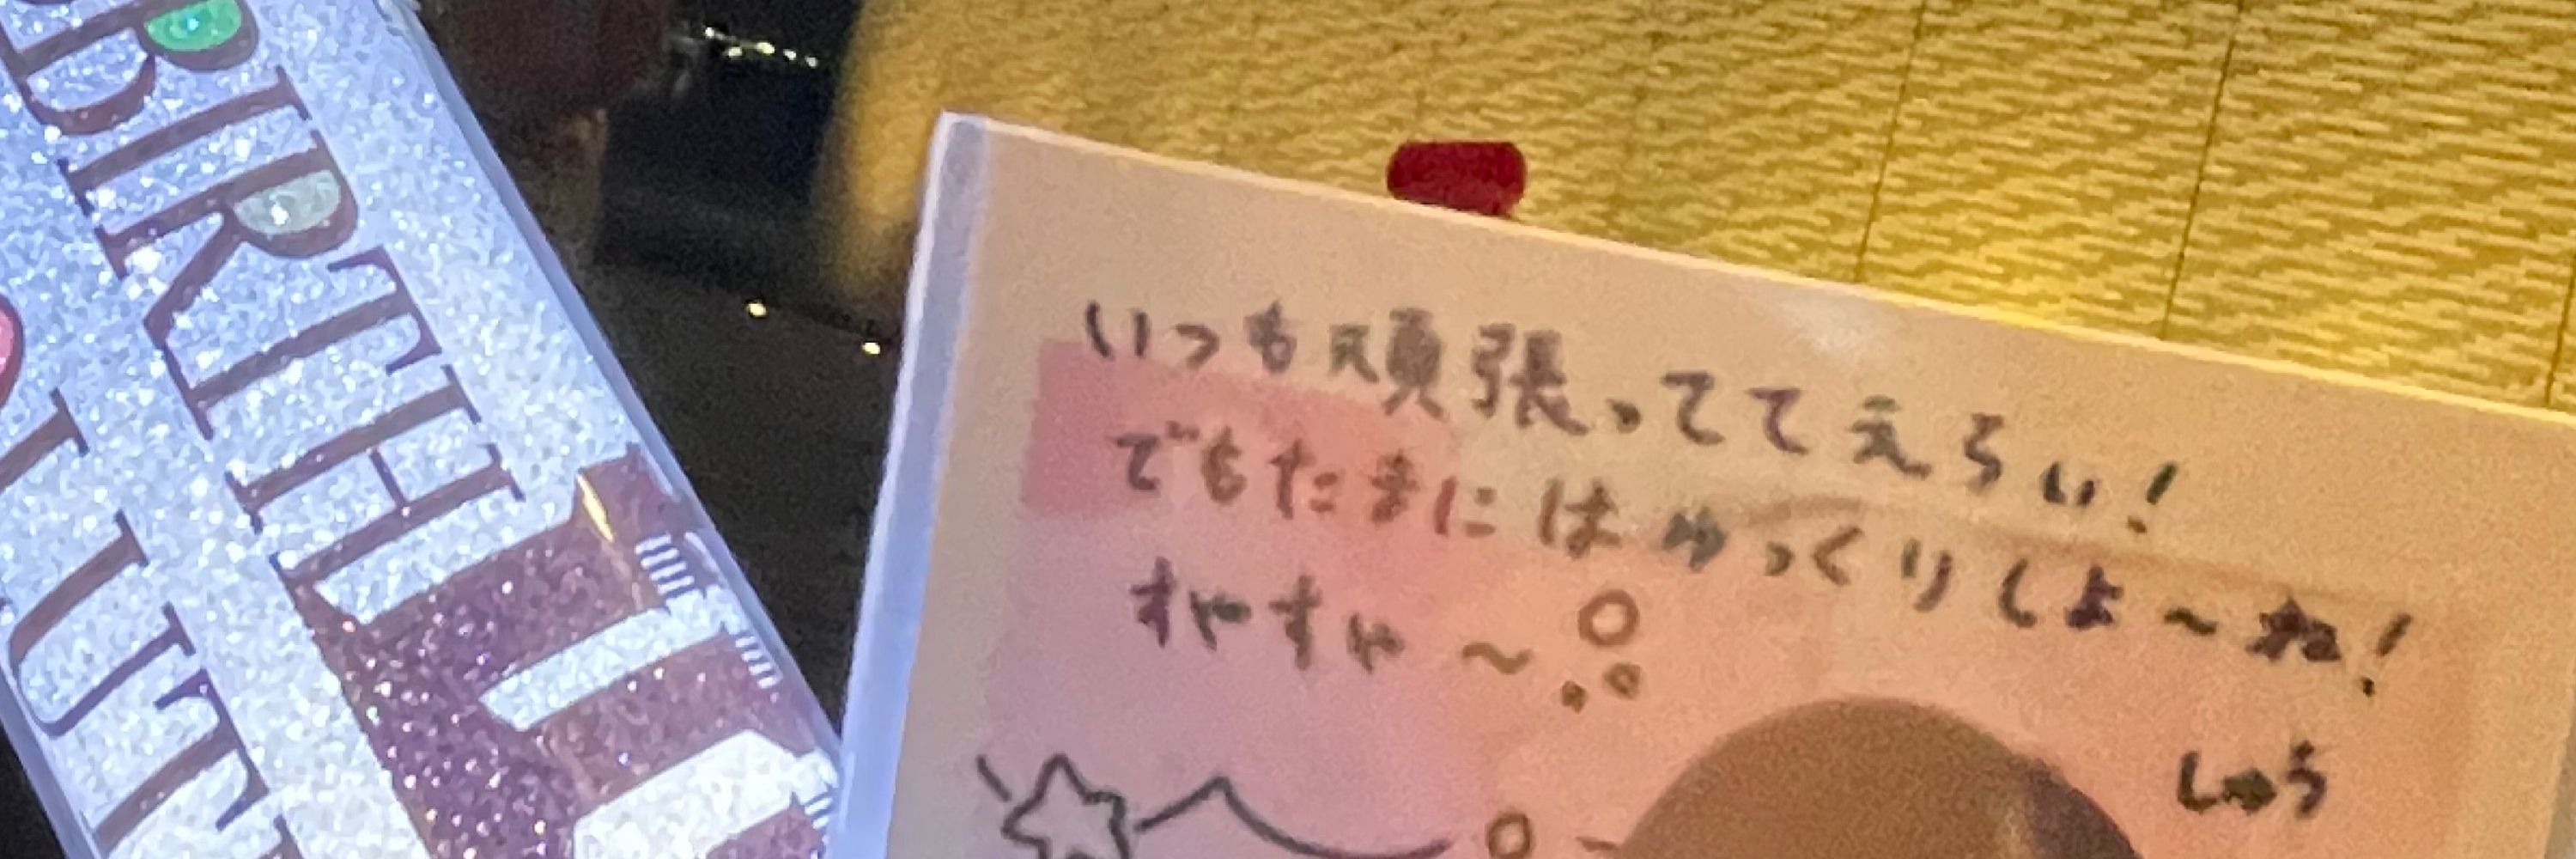 BIRTH
いつも頑張っててえらい!
でもたまにはゆっくりしよ〜ね!
すやすや〜
しゅう